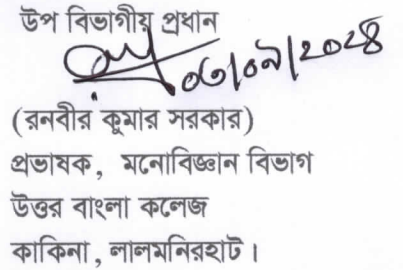 উপ বিভাগীয় প্রধান
০৩/০৯/২০২৪
(রনবীর কুমার সরকার)
প্রভাষক, মনোবিজ্ঞান বিভাগ
উত্তর বাংলা কলেজ
কাকিনা, লালমনিরহাট।